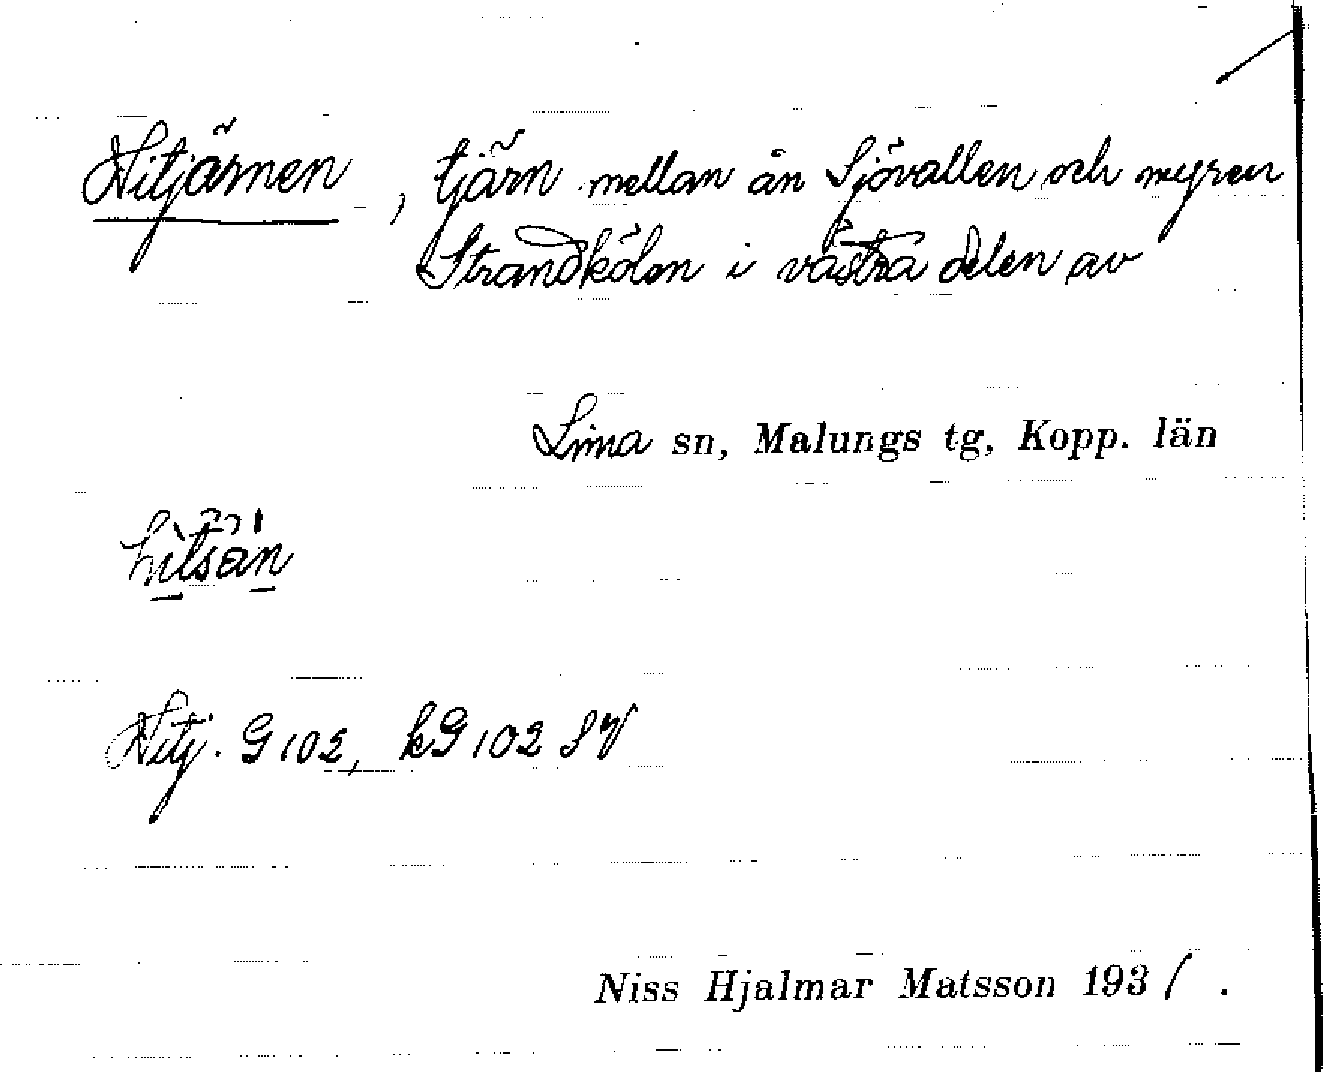 Hitjärnen, tjärn mellan ån Sjövallen och myren
Strandkölen i västra delen av
Lima sn, Malungs tg, Kopp. län
Hitj. G 102, kG 102 SV
Niss Hjalmar Matsson 1931.